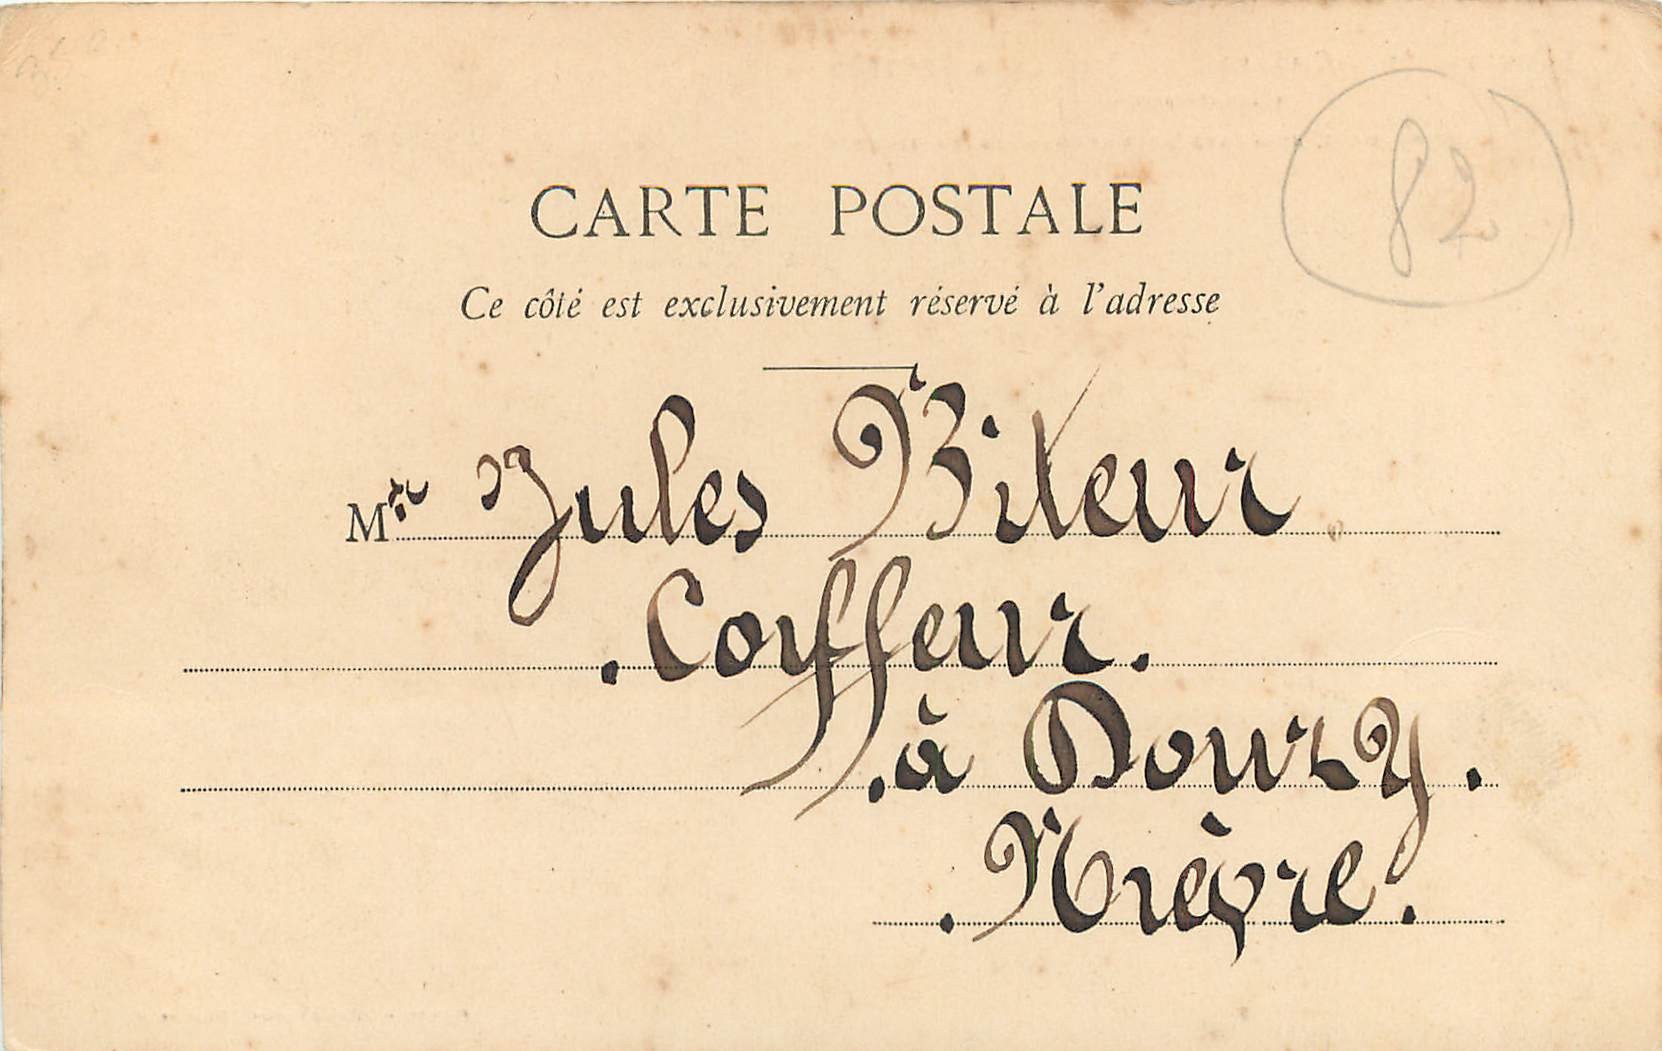 82
CARTE POSTALE
Ce côté est exclusivement réservé à l'adresse
Mr Jules Biteur
. Coiffeur .
. à Donzy .
. Nièvre .